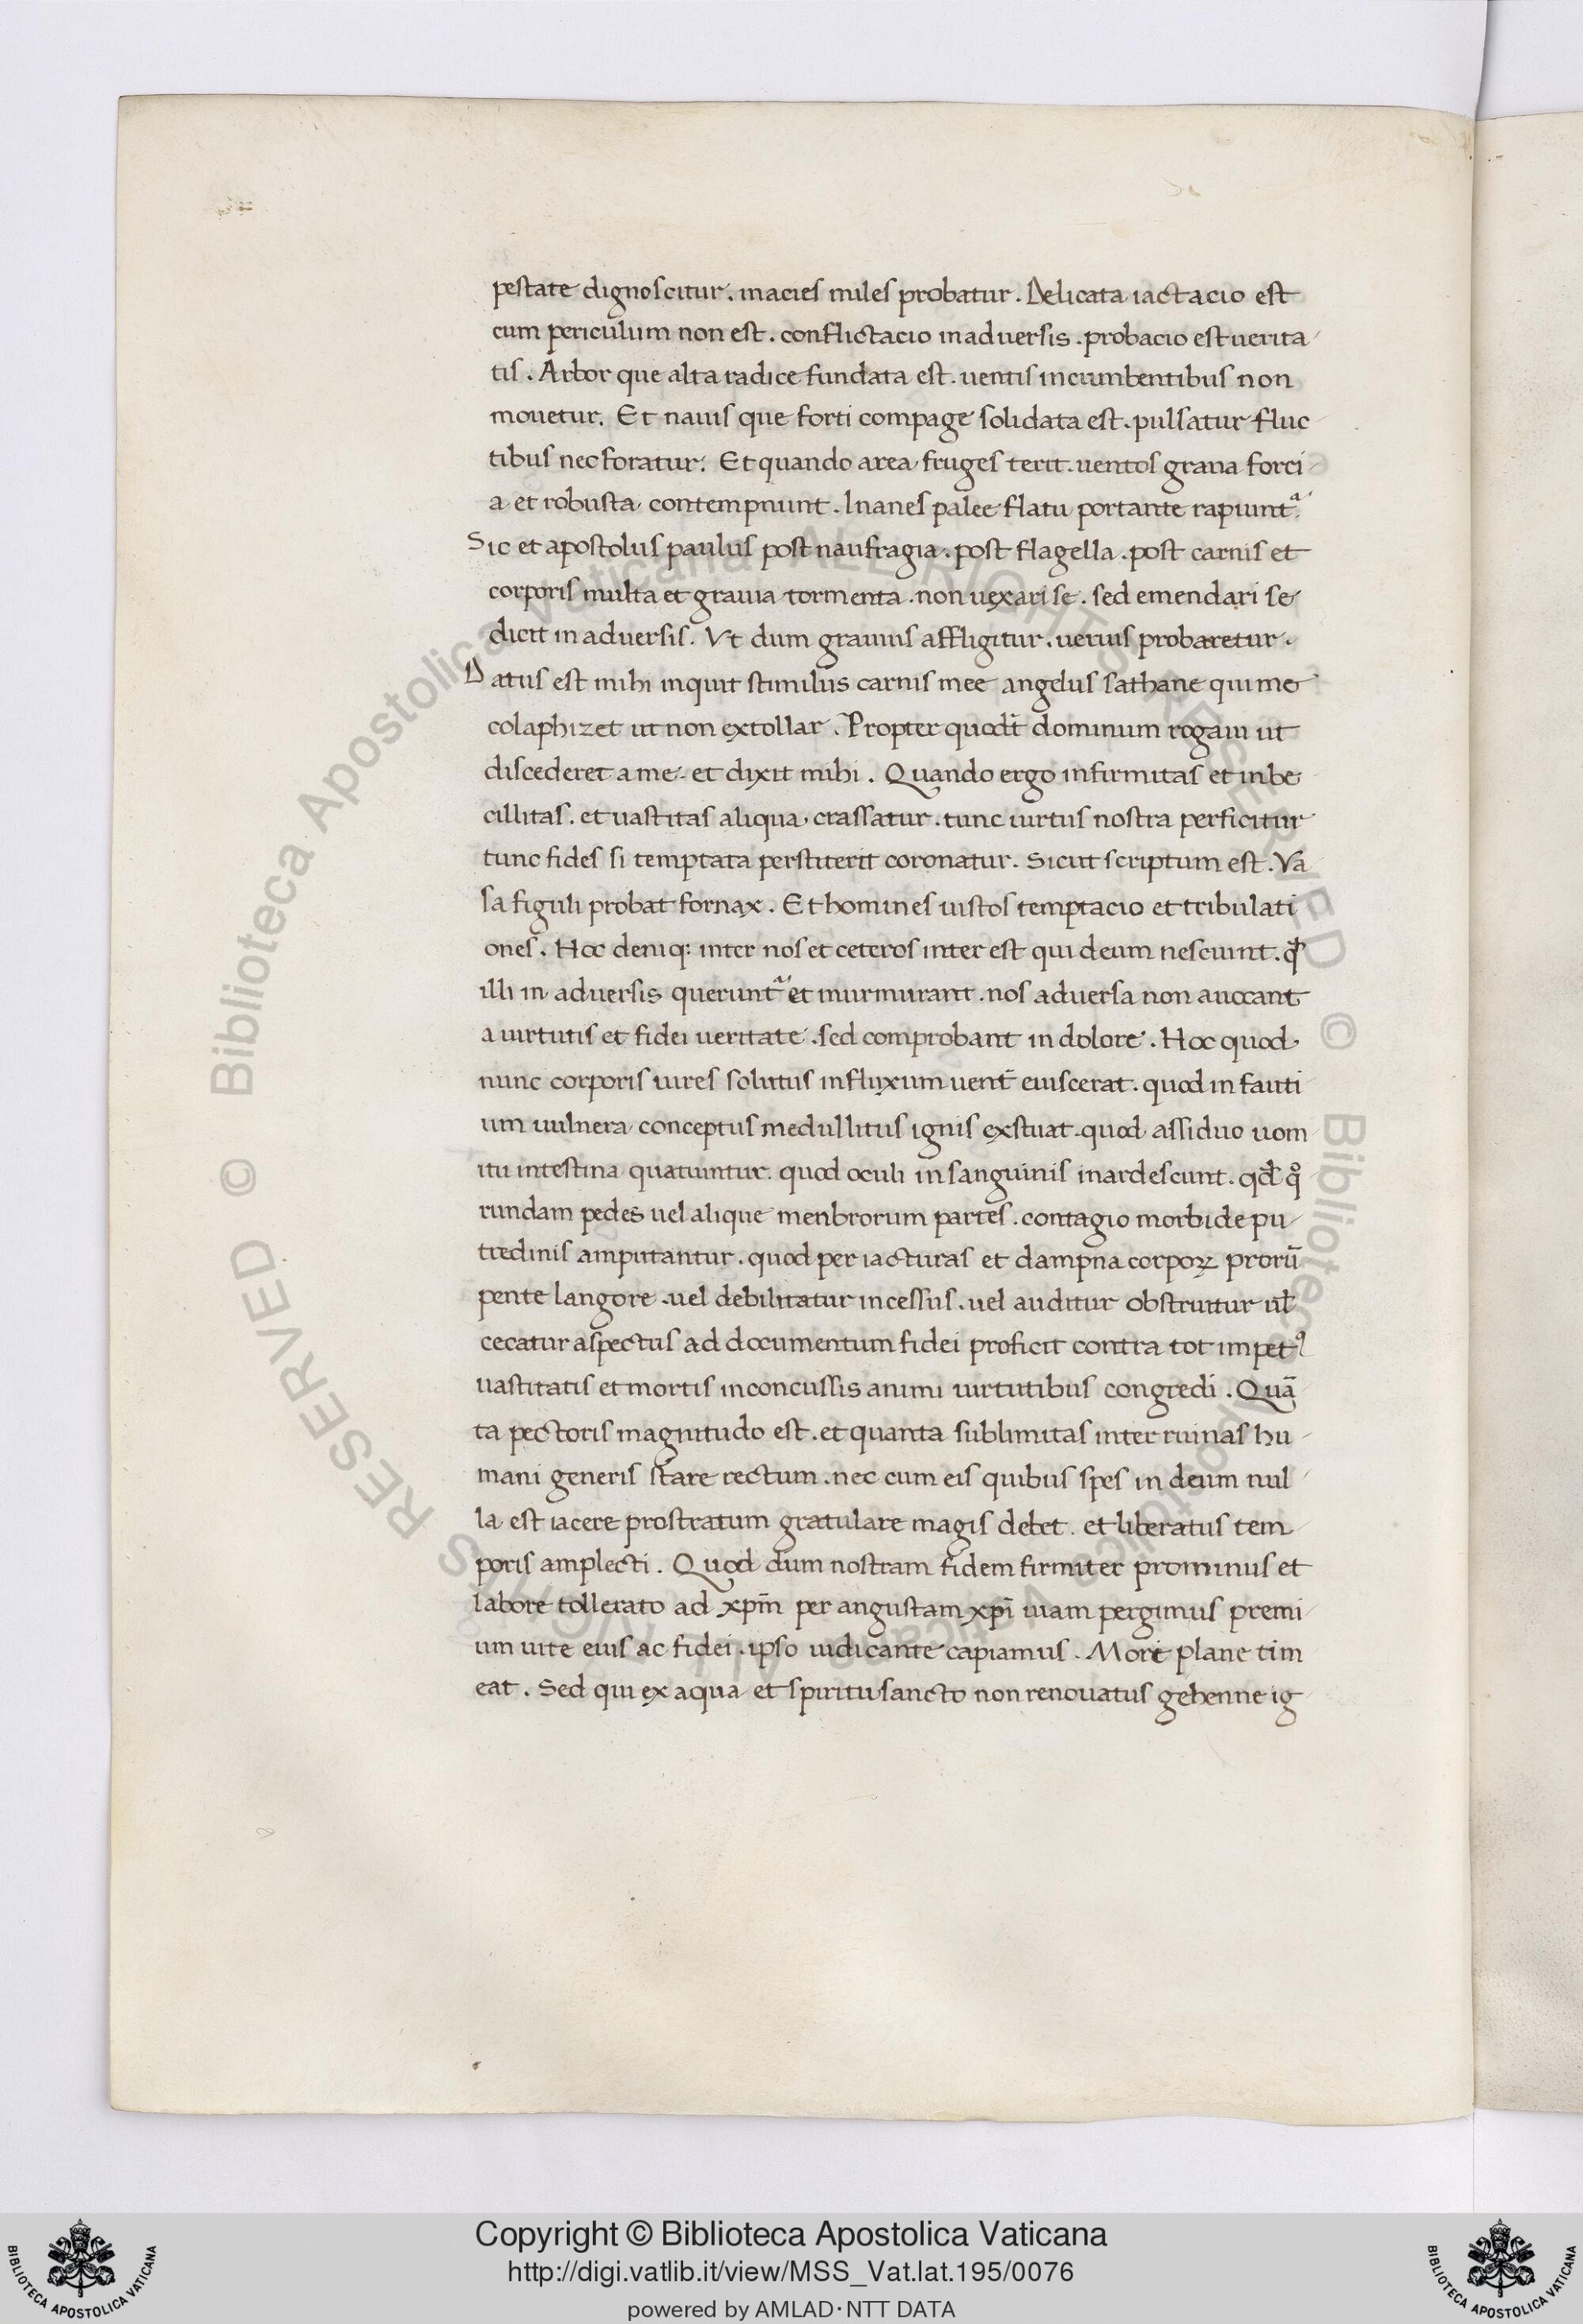 pestate dignoscitur. inacies miles probatur. Delicata iactacio est
cum periculum non est. conflictacio inadversis. probacio est uerita
tis. Arbor que alta radice fundata est. uentis incumbentibus non
mouetur. Et nauis que forti compage solidata est. pulsatur fluc
tibus nec foratur. Et quando area fruges terit. uentos grana forci
a et robusta contempnunt. Inanes palee flatu portante rapiuntᵃ.
Sic et apostolus paulus post naufragia. post flagella. post carnis et
corporis multa et grauia tormenta. non uexari se. sed emendari se
dicit in adversis. Vt dum grauius affligitur. uerius probaretur.
Datus est mihi inquit stimulus carnis mee angelus sathane qui me
colaphizet ut non extollar. Propter quodt̄ dominum rogaui ut
discederet a me. et dixit mihi. Quando ergo infirmitas et inbe
cillitas. et uastitas aliqua crassatur. tunc uirtus nostra perficitur
tunc fides si temptata perstiterit coronatur. Sicut scriptum est. Va
sa figuli probat fornax. Et homines iustos temptacio et tribulati
ones. Hoc deniq: inter nos et ceteros inter est qui deum nesciunt. qđ
illi in aduersis queruntᵃ et murmurant. nos aduersa non auocant
a uirtutis et fidei ueritate. sed comprobant in dolore. Hoc quod
nunc corporis uires solutus in fluxum uent̄ euiscerat. quod in fauti
um uulnera conceptus medullitus ignis exstuat. quod assiduo uom
itu intestina quatiuntur. quod oculi in sanguinis inardescunt. qđ qͦ
rundam pedes uel alique menbrorum partes. contagio morbide pu
tredinis amputantur. quod per iacturas et dampna corpoꝝ prorū
pente langore. uel debilitatur incessus. uel auditur obstruitur ul̄
cecatur aspectus ad documentum fidei proficit contra tot impetꝰ
uastitatis et mortis inconcussis animi uirtutibus congredi. Quā
ta pectoris magnitudo est. et quanta sublimitas inter ruinas hu
mani generis stare rectum. nec cum eis quibus spes in deum nul
la est iacere prostratum gratulare magis debet. et liberatus tem
poris amplecti. Quod dum nostram fidem firmiter prominus et
labore tollerato ad xpm̄ per angustam xpi̅ uiam pergimus premi
um uite eius ac fidei. ipso iudicante capiamus. Mori plane tim
eat. Sed qui ex aqua et spiritu sancto non renouatus gehenne ig
Copyright © Biblioteca Apostolica Vaticana
http://digi.vatlib.it/view/MSS_Vat.lat.195/0076
powered by AMLAD·NTT DATA
© Biblioteca Apostolica Vaticana ALL RIGHTS RESERVED
© Biblioteca Apostolica Vaticana ALL RIGHTS RESERVED
BIBLIOTECA APOSTOLICA VATICANA
BIBLIOTECA APOSTOLICA VATICANA